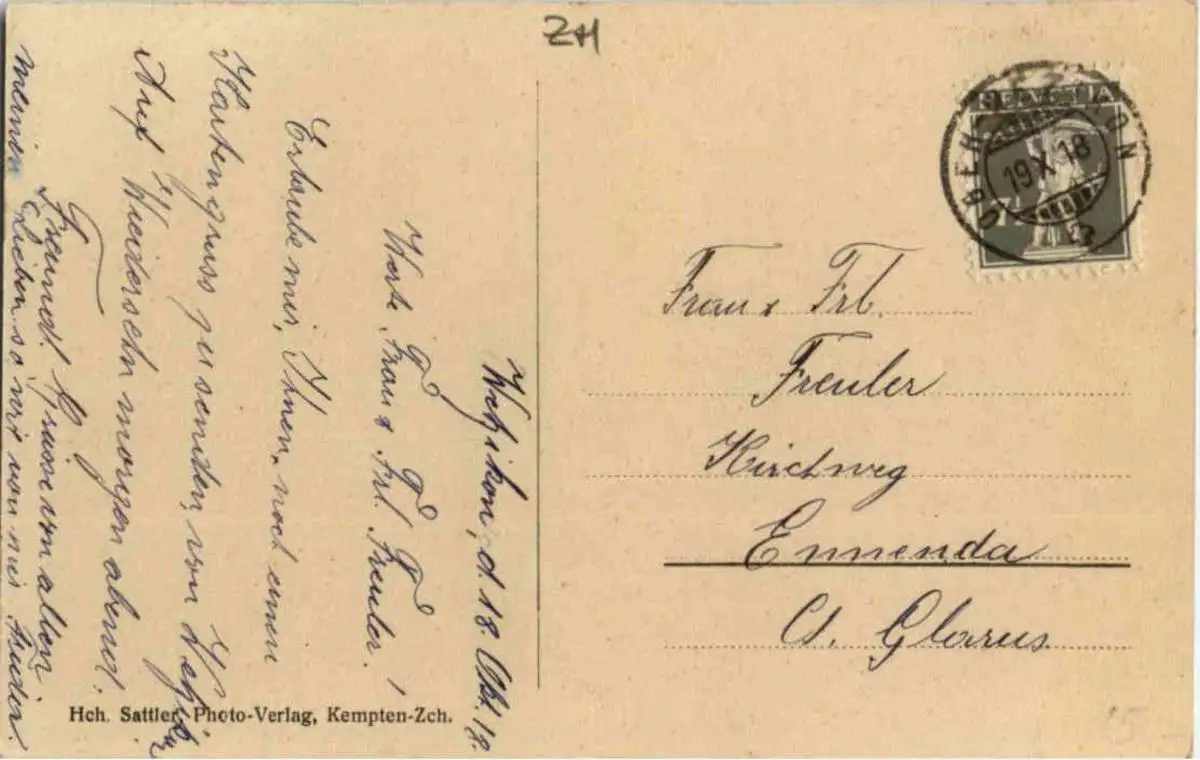 ZH
HELVETIA
OBERWETZIKON
19.X.18
7½
Wetzikon, d. 18. Okt. 18.
Werte Frau & Frl. Freuler!
Erlaube mir, Ihnen, noch einen
Kartengruss zu senden, von
Auf Wiedersehn morgen abend.
Freundl. Grüsse von allen
meinen Lieben so wie von mir
Frau & Frl.
Freuler
Kirchweg
Ennenda
Ct. Glarus.
Hch. Sattler, Photo-Verlag, Kempten-Zch.
15